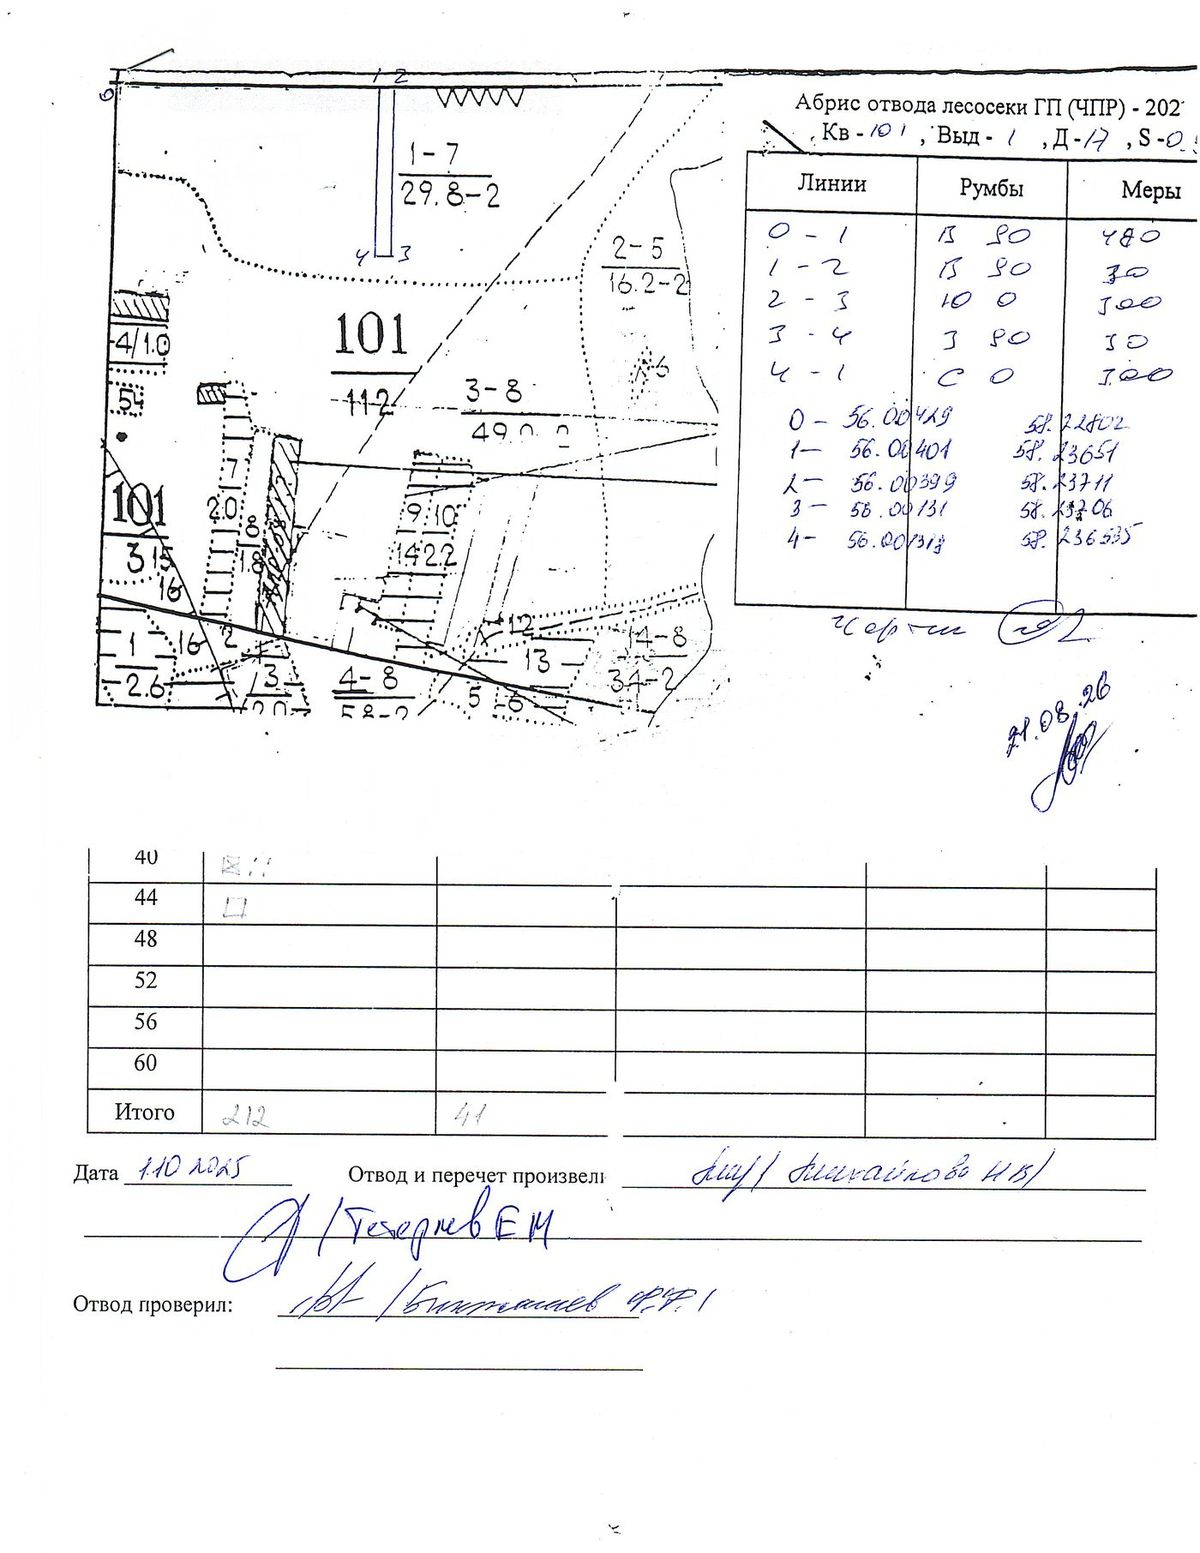 Абрис отвода лесосеки ГП (ЧПР) - 202
Кв - 101 , Выд - 1 , Д - 17 , S - 0.
Линии Румбы Меры
0 - 1 В 90 480
1 - 2 В 90 30
2 - 3 Ю 0 300
3 - 4 З 90 30
4 - 1 С 0 300
0 - 56.00429 58.22802
1 - 56.00401 58.23651
2 - 56.00399 58.23711
3 - 56.00131 58.23706
4 - 58.236535
21.08.26
0
1 2
1-7
29.8-2
4 3
2-5
16.2-2
101
112
4/1.0
54
3-8
7
2.0
8
1.8
9 10
1.4 2.2
101
3
15
16
16
1
2.6
2
3
1
4-8
12
13
5
6
14-8
34-2
40
44
48
52
56
60
Итого 212 41
Дата 1.10 2025 Отвод и перечет произвели Михайлова Н В
Отвод проверил: